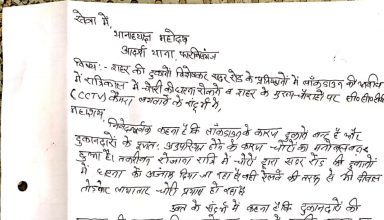 सेवा में,
थानाध्यक्ष महोदय
आदर्श थाना, फारबिसगंज
विषय:- शहर की दुकानों विशेषकर सदर रोड के प्रतिष्ठानों में लॉकडाउन की अवधि
में रात्रिकाल में चोरी की घटना रोकने व शहर के मुख्य चौराहों पर सी०सी०टी०
(CCTV) कैमरा लगवाने के संदर्भ में,
महाशय,
निवेदनपूर्वक कहना है कि लॉकडाउन के कारण दुकानें बन्द हैं और
दुकानदारों के अनुपस्थित रहने के कारण चोरों का मनोबल बढ़ा
हुआ है। तकरीबन रोजाना रात्रि में चोरों द्वारा सदर रोड की दुकानों
में घटना को अंजाम दिया जा रहा है वहीं रेलवे की तरफ से भी दीवाल
तोड़कर लगातार चोरी प्रयास हो रहा है
उक्त के संदर्भ में कहना है कि दुकानदारों की